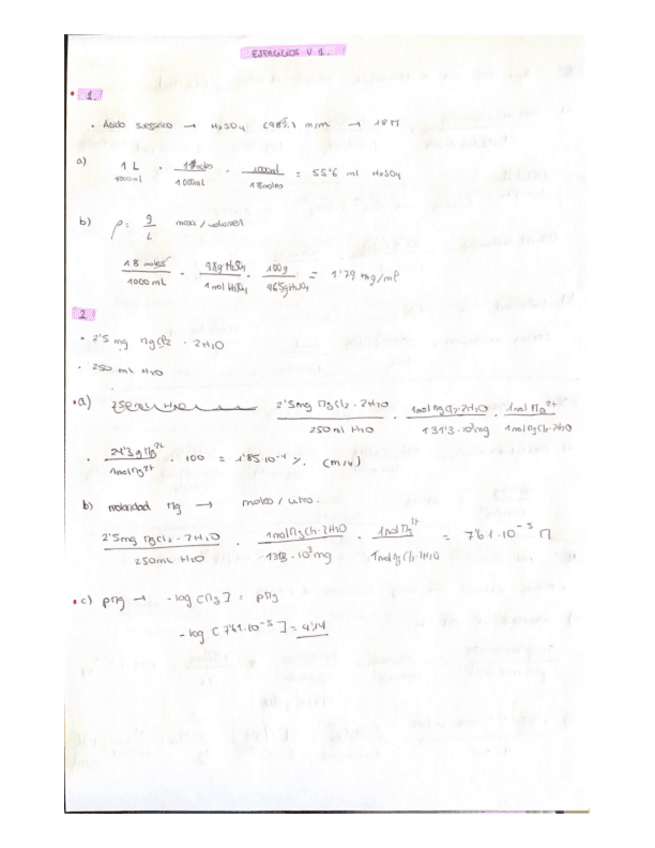 EJERCICIOS U 1.
1.
• Ácido sulfúrico → H2SO4 (98%) m/m → 18M
a) 1 L / 1000ml · 18moles / 1000mL · 1000ml / 18moles = 55'6 ml H2SO4
b) ρ: g / L masa / volumen
18 moles / 1000 mL · 98g H2SO4 / 1 mol H2SO4 · 100g / 96'5g H2SO4 = 1'79 mg/ml
2
• 2'5 mg MgCl2 · 2H2O
• 250 ml H2O
• a) 2'5mg MgCl2 · 2H2O / 250 ml H2O · 1mol MgCl2·2H2O / 131'3·10³mg · 1mol Mg2+ / 1mol MgCl2·2H2O
· 24'3g Mg2+ / 1mol Mg2+ · 100 = 1'85·10⁻⁴ %. (m/v)
b) molaridad Mg → moles / litro.
2'5mg MgCl2 · 2H2O / 250mL H2O · 1mol MgCl2·2H2O / 131'3·10³mg · 1mol Mg2+ / 1mol MgCl2·2H2O = 7'61·10⁻⁵ M
• c) pMg → -log [Mg] = pMg
-log [7'61·10⁻⁵] = 4'14